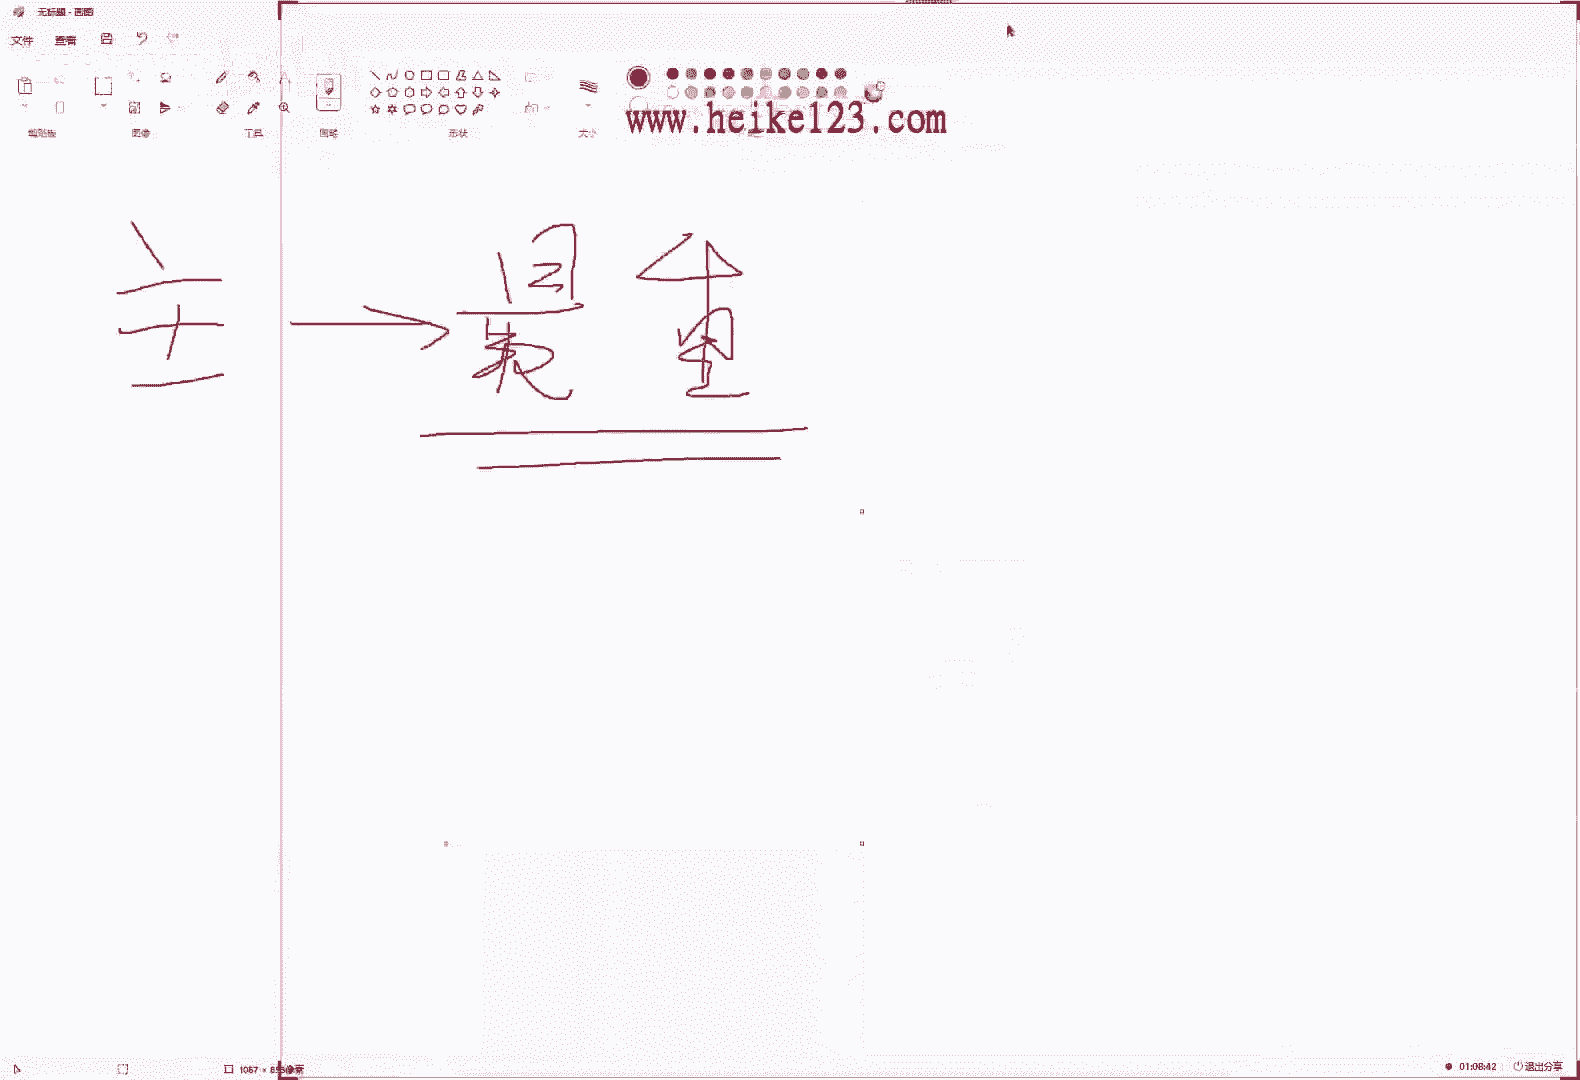 无标题 - 画图
文件 查看
剪贴板 图像 工具 画笔 形状 大小
www.heike123.com
主 最重
01:08:42 退出分享